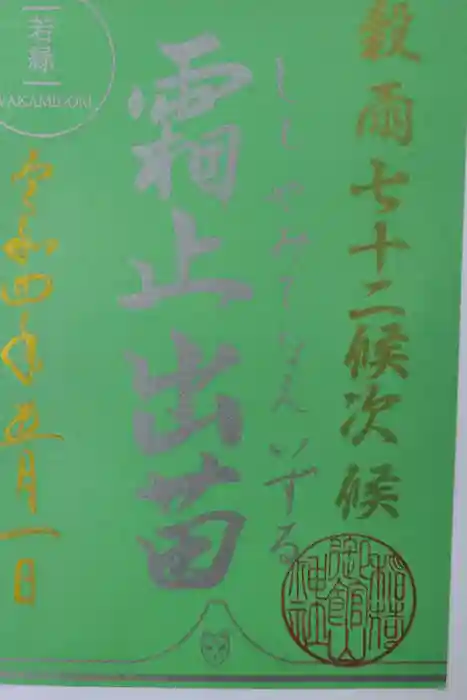 穀雨七十二候次候
しもやみてなえいずる
霜止出苗
令和四年五月一日
若緑
WAKAMIDORI
稲荷
御館山
神社